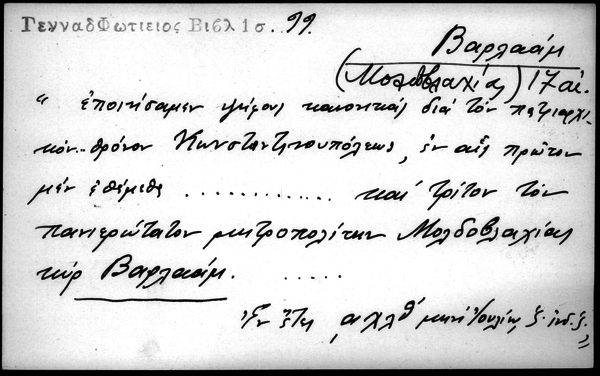 ΓενναδΦωτιειος Βιβλ 1σ. 99.
Βαρλαάμ
(Μολδοβλαχίας) 17 αἰ.
" ἐποιήσαμεν ψήφους κανονικάς διά τόν πατριαρχι-
κόν θρόνον Κωνσταντινουπόλεως, ἐν αἷς πρῶτον
μέν ἐθέμεθα ............ καί τρίτον τόν
πανιερώτατον μητροπολίτην Μολδοβλαχίας
κύρ Βαρλαάμ. .....
Ἐν ἔτει ͵αχλθ΄ μηνί Ἰουλίῳ, ζ. ἰνδ. ζ. "